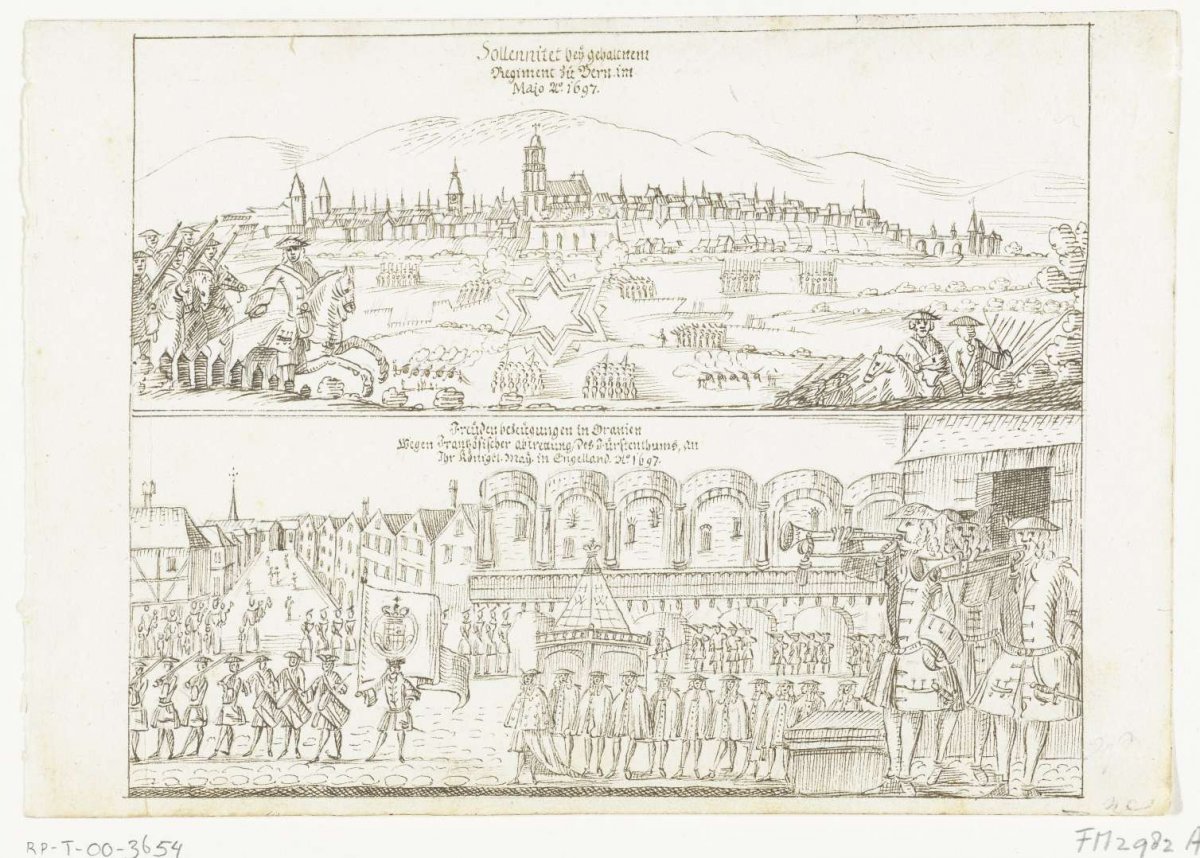 Sollennitet bey gehaltnem
Regiment zu Bern im
Majo Aº. 1697.
Freüden bezeügungen in Oranien
Wegen Frantzösischer abtrettung des Fürstenthums, an
Ihr Königel. May. in Engelland. Aº. 1697.
RP-T-00-3654
FM2982 A